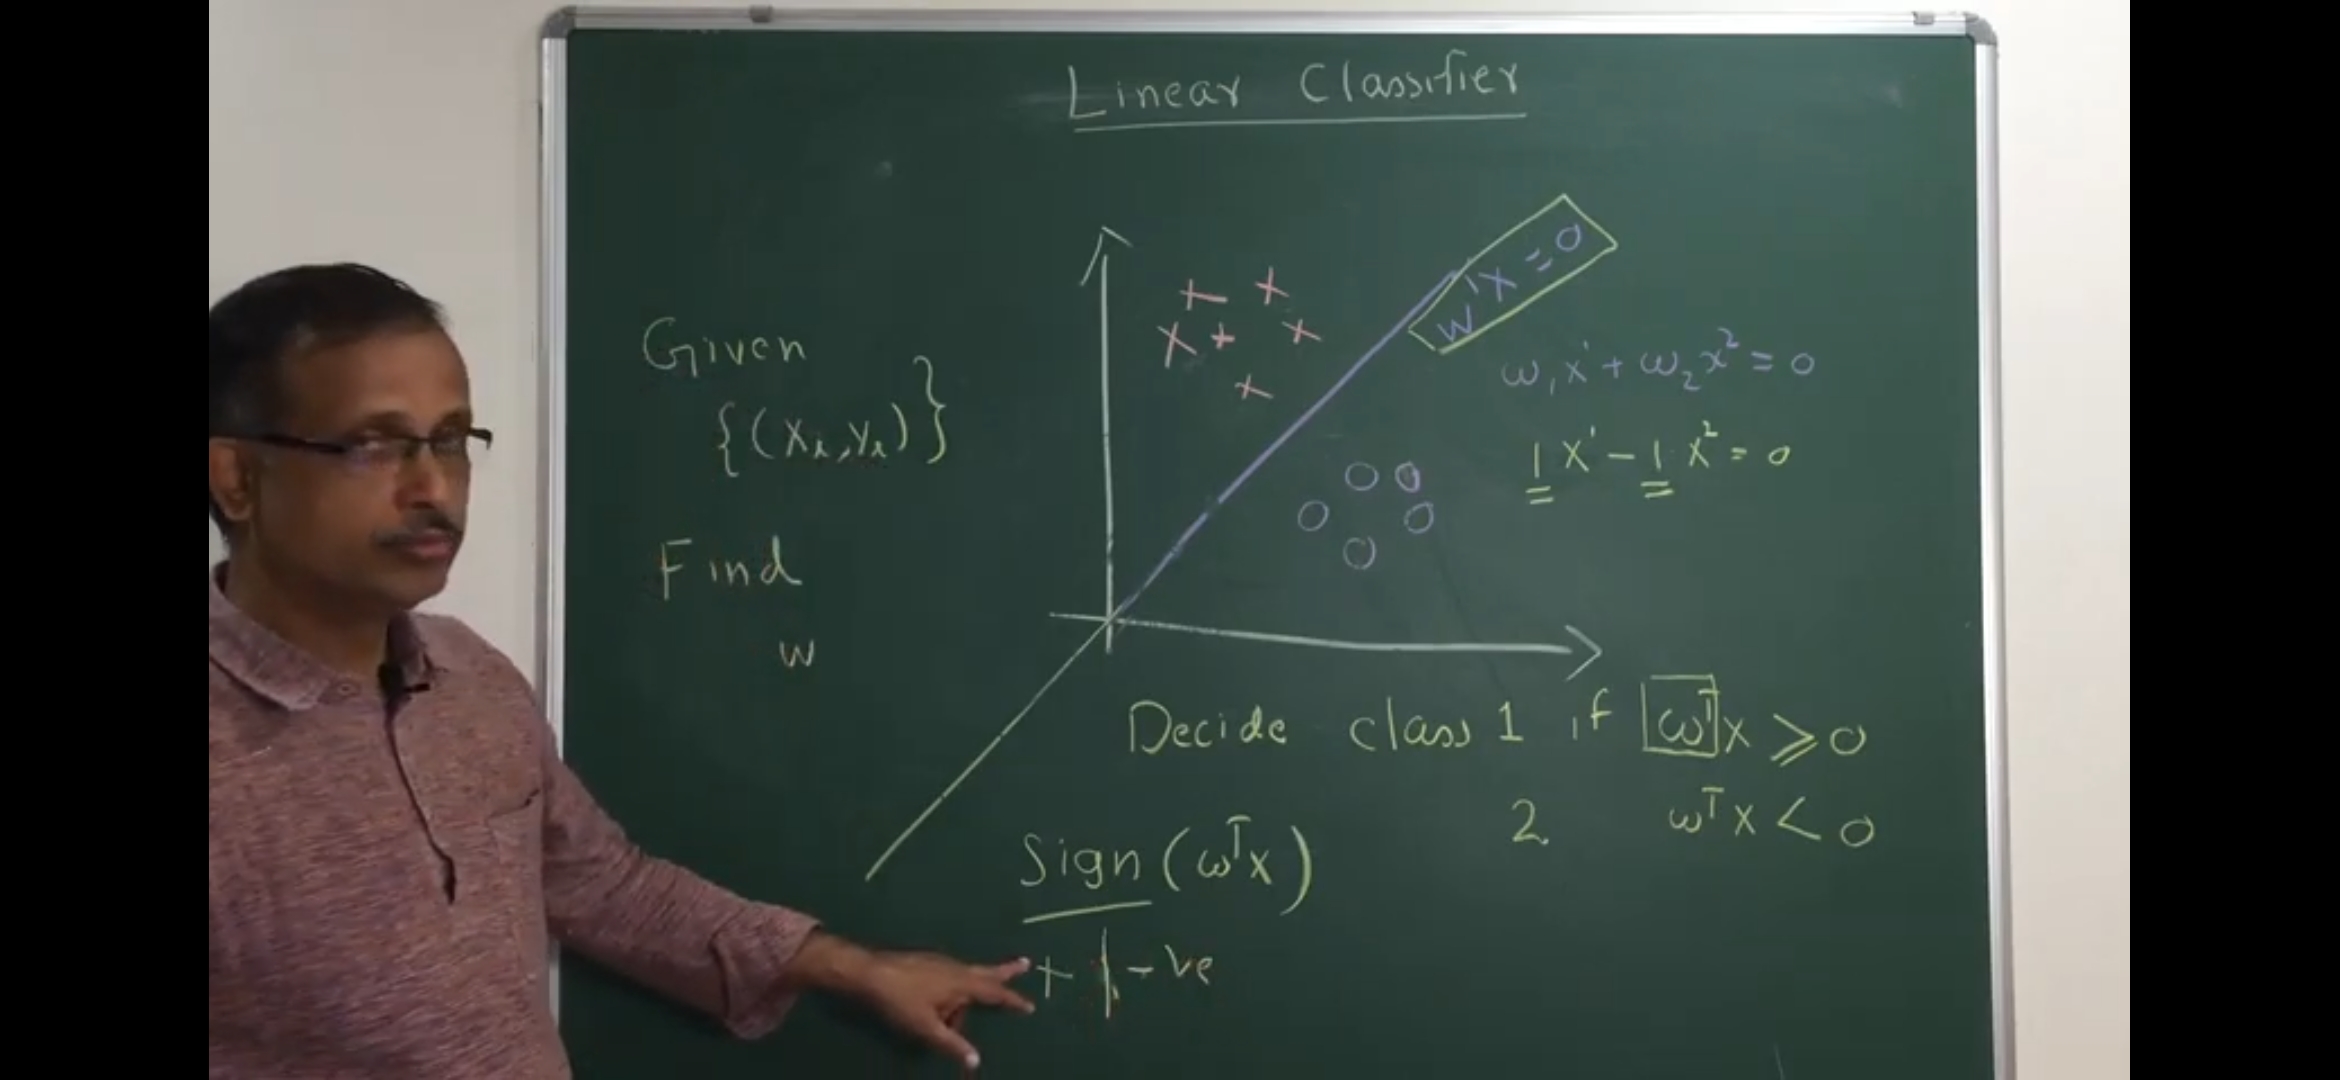 Linear Classifier
Given
{(xᵢ,yᵢ)}
Find
w
wᵀx = 0
ω₁x¹ + ω₂x² = 0
1x¹ - 1x² = 0
Decide class 1 if ωᵀx ≥ 0
2 ωᵀx < 0
Sign(ωᵀx)
+ | -ve